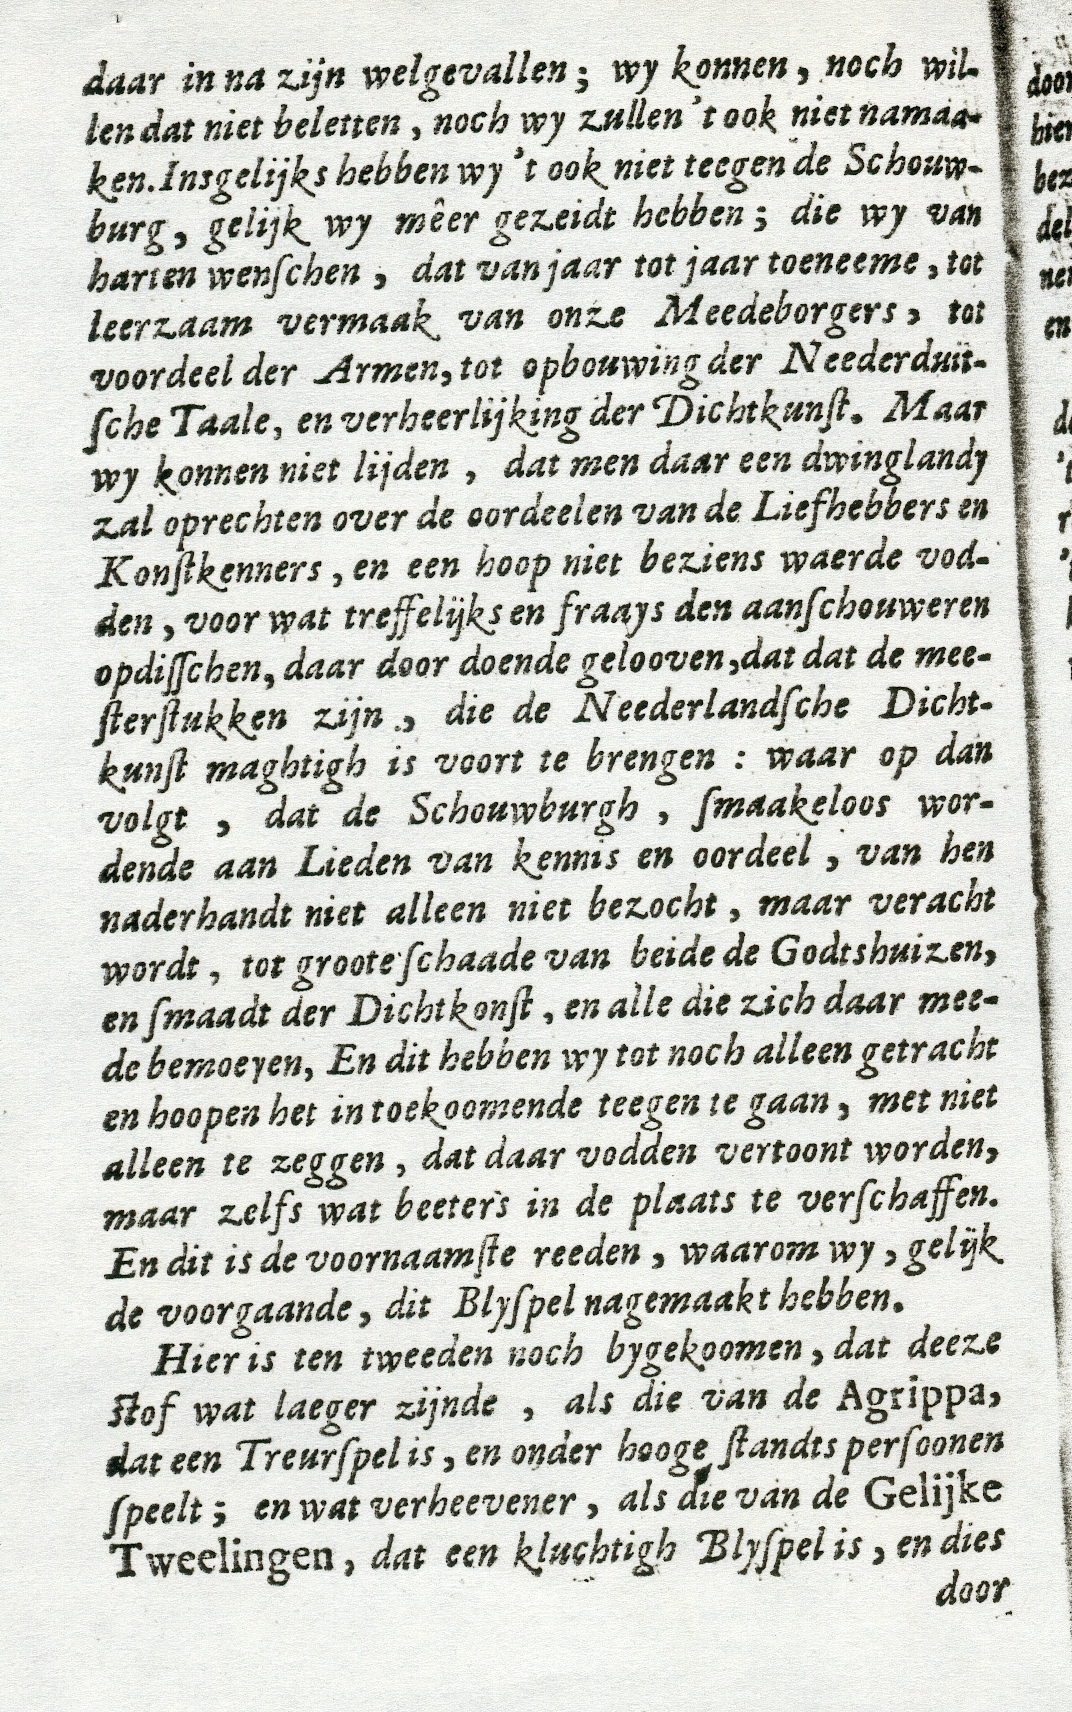 daar in na zijn welgevallen; wy konnen, noch wil-
len dat niet beletten, noch wy zullen 't ook niet namaa-
ken. Insgelijks hebben wy 't ook niet teegen de Schouw-
burg, gelijk wy mêer gezeidt hebben; die wy van
harten wenſchen, dat van jaar tot jaar toeneeme, tot
leerzaam vermaak van onze Meedeborgers, tot
voordeel der Armen, tot opbouwing der Neederduit-
ſche Taale, en verheerlijking der Dichtkunſt. Maar
wy konnen niet lijden, dat men daar een dwinglandy
zal oprechten over de oordeelen van de Liefhebbers en
Konſtkenners, en een hoop niet beziens waerde vod-
den, voor wat treffelijks en fraays den aanſchouweren
opdiſſchen, daar door doende gelooven, dat dat de mee-
ſterſtukken zijn, die de Neederlandſche Dicht-
kunſt maghtigh is voort te brengen: waar op dan
volgt, dat de Schouwburgh, ſmaakeloos wor-
dende aan Lieden van kennis en oordeel, van hen
naderhandt niet alleen niet bezocht, maar veracht
wordt, tot groote ſchaade van beide de Godtshuizen,
en ſmaadt der Dichtkonſt, en alle die zich daar mee-
de bemoeyen, En dit hebben wy tot noch alleen getracht
en hoopen het in toekoomende teegen te gaan, met niet
alleen te zeggen, dat daar vodden vertoont worden,
maar zelfs wat beeters in de plaats te verſchaffen.
En dit is de voornaamſte reeden, waarom wy, gelijk
de voorgaande, dit Blyſpel nagemaakt hebben.
Hier is ten tweeden noch bygekoomen, dat deeze
ſtof wat laeger zijnde, als die van de Agrippa,
dat een Treurſpel is, en onder hooge ſtandts perſoonen
ſpeelt; en wat verheevener, als die van de Gelijke
Tweelingen, dat een kluchtigh Blyſpel is, en dies
door